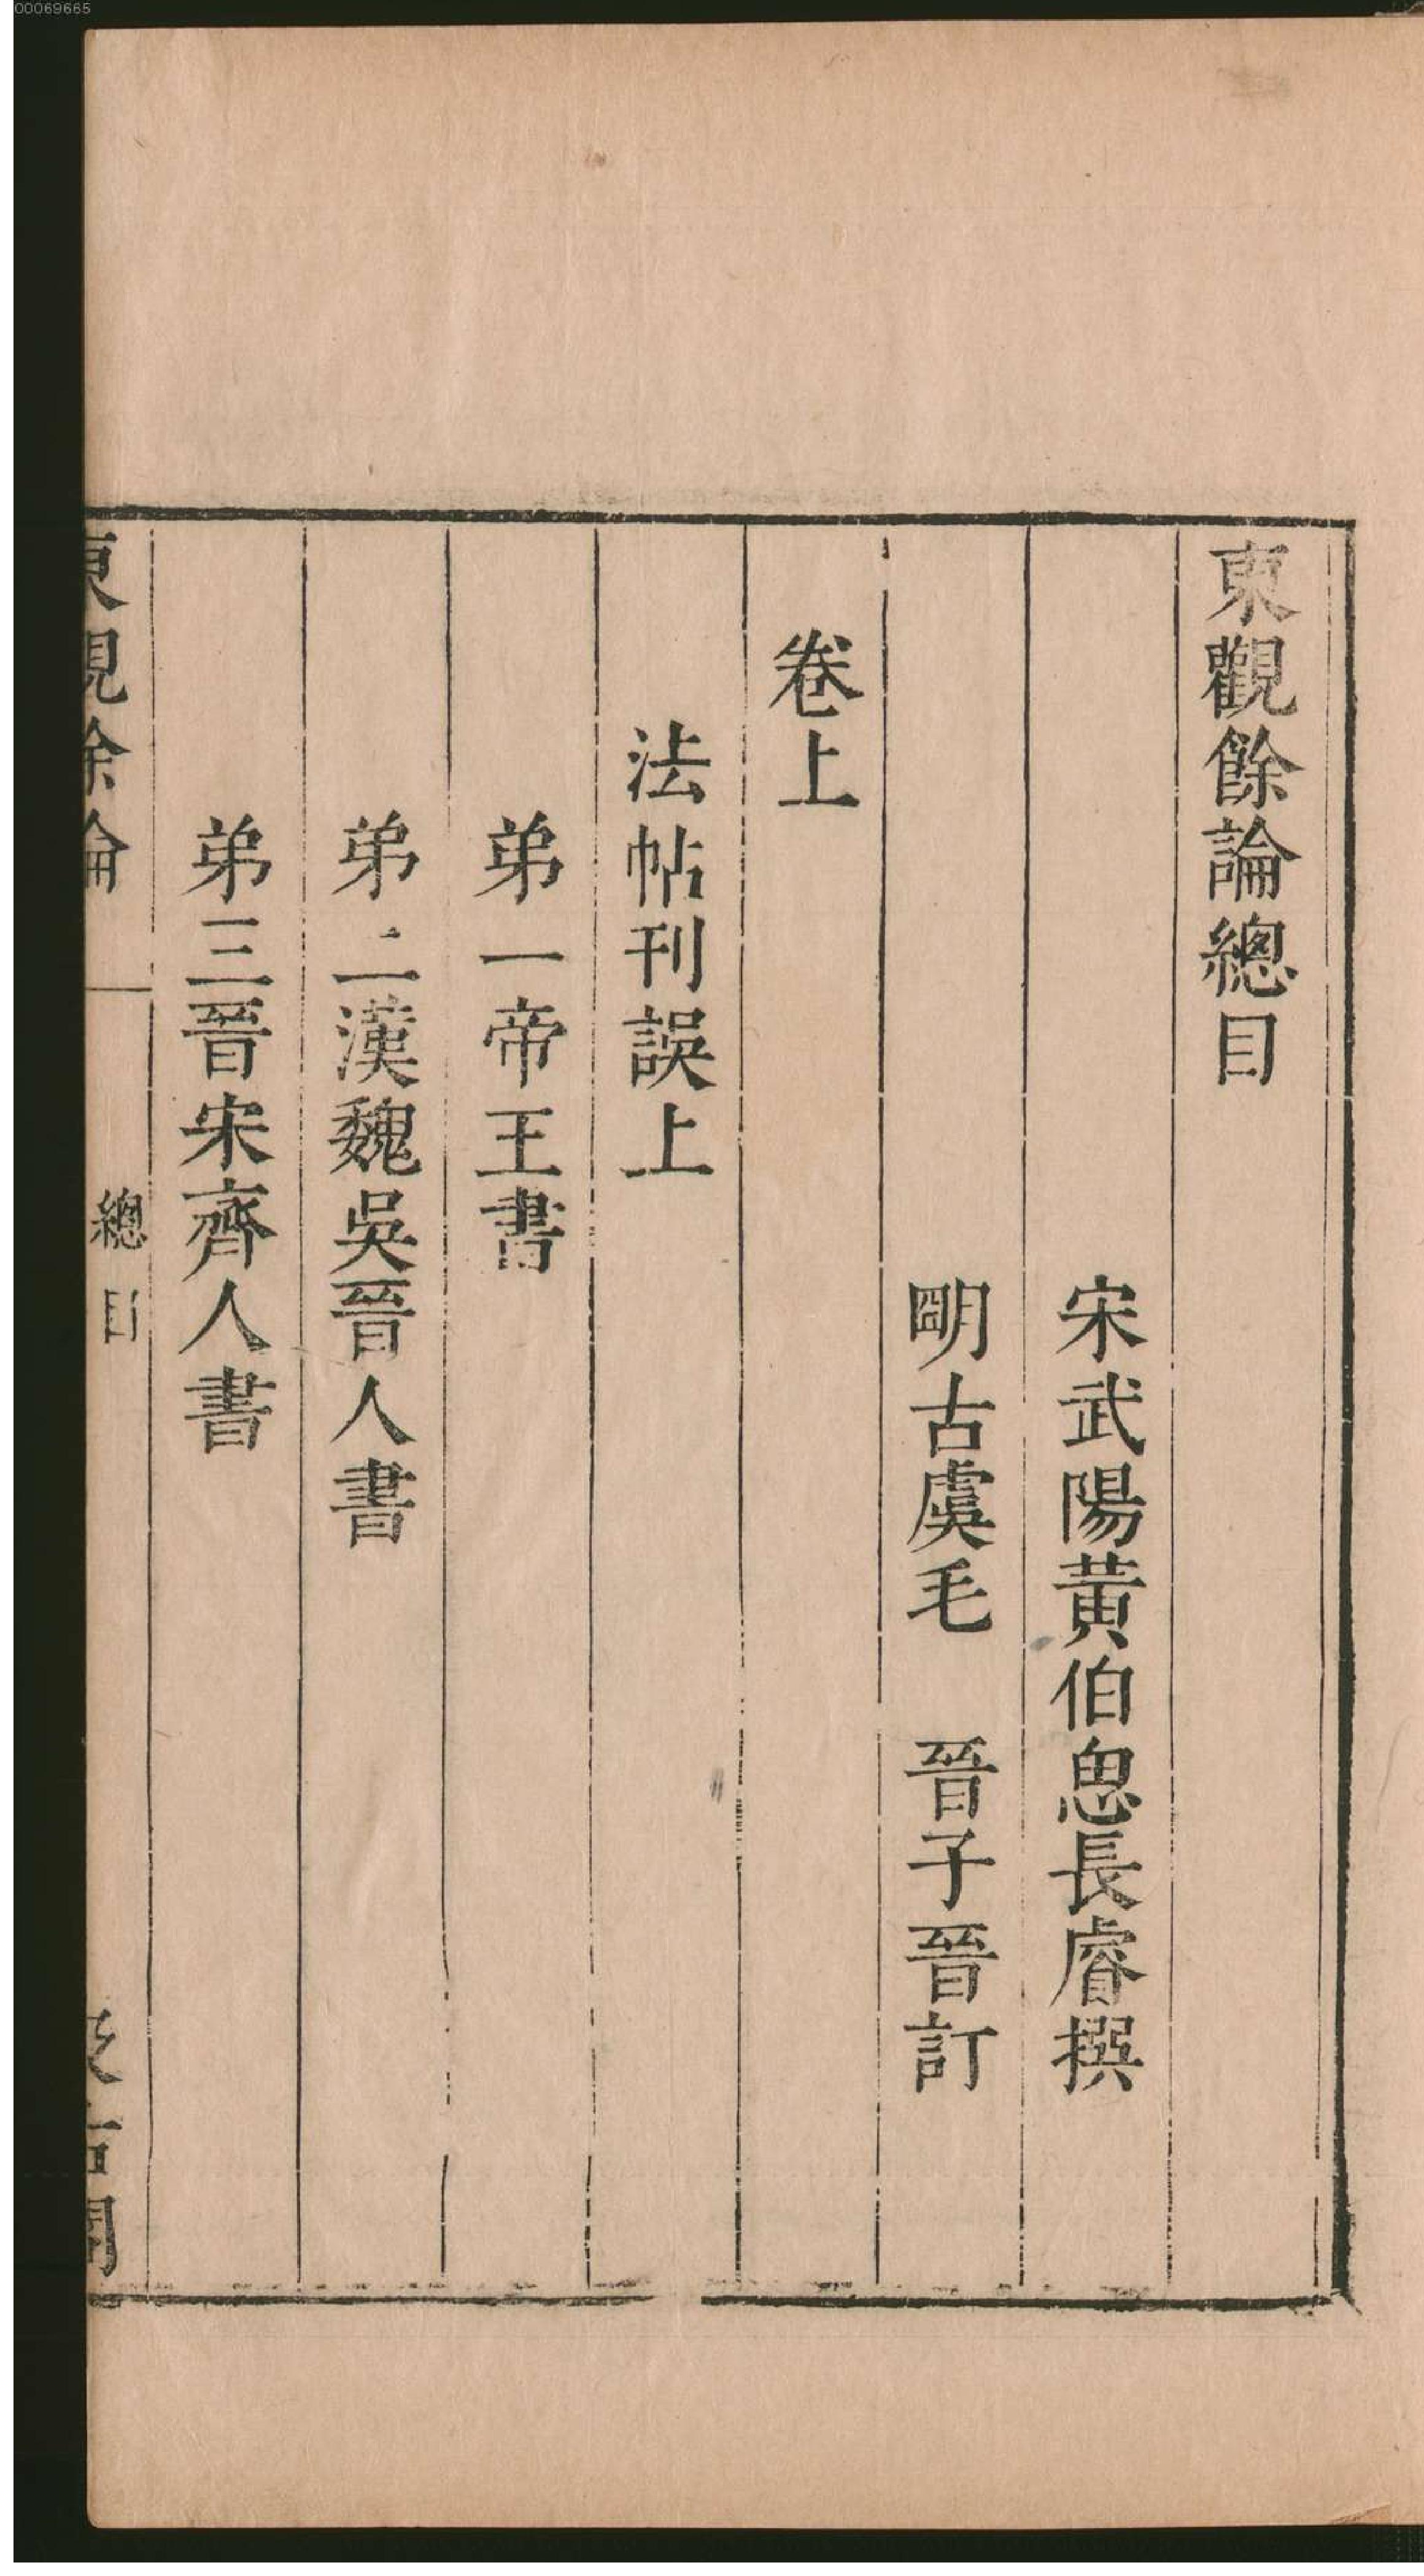 00069665
東觀餘論總目
宋武陽黃伯思長睿撰
朙古虞毛　晉子晉訂
卷上
法帖刊誤上
弟一帝王書
弟二漢魏吳晉人書
弟三晉宋齊人書
東觀餘論
總目
汲古閣